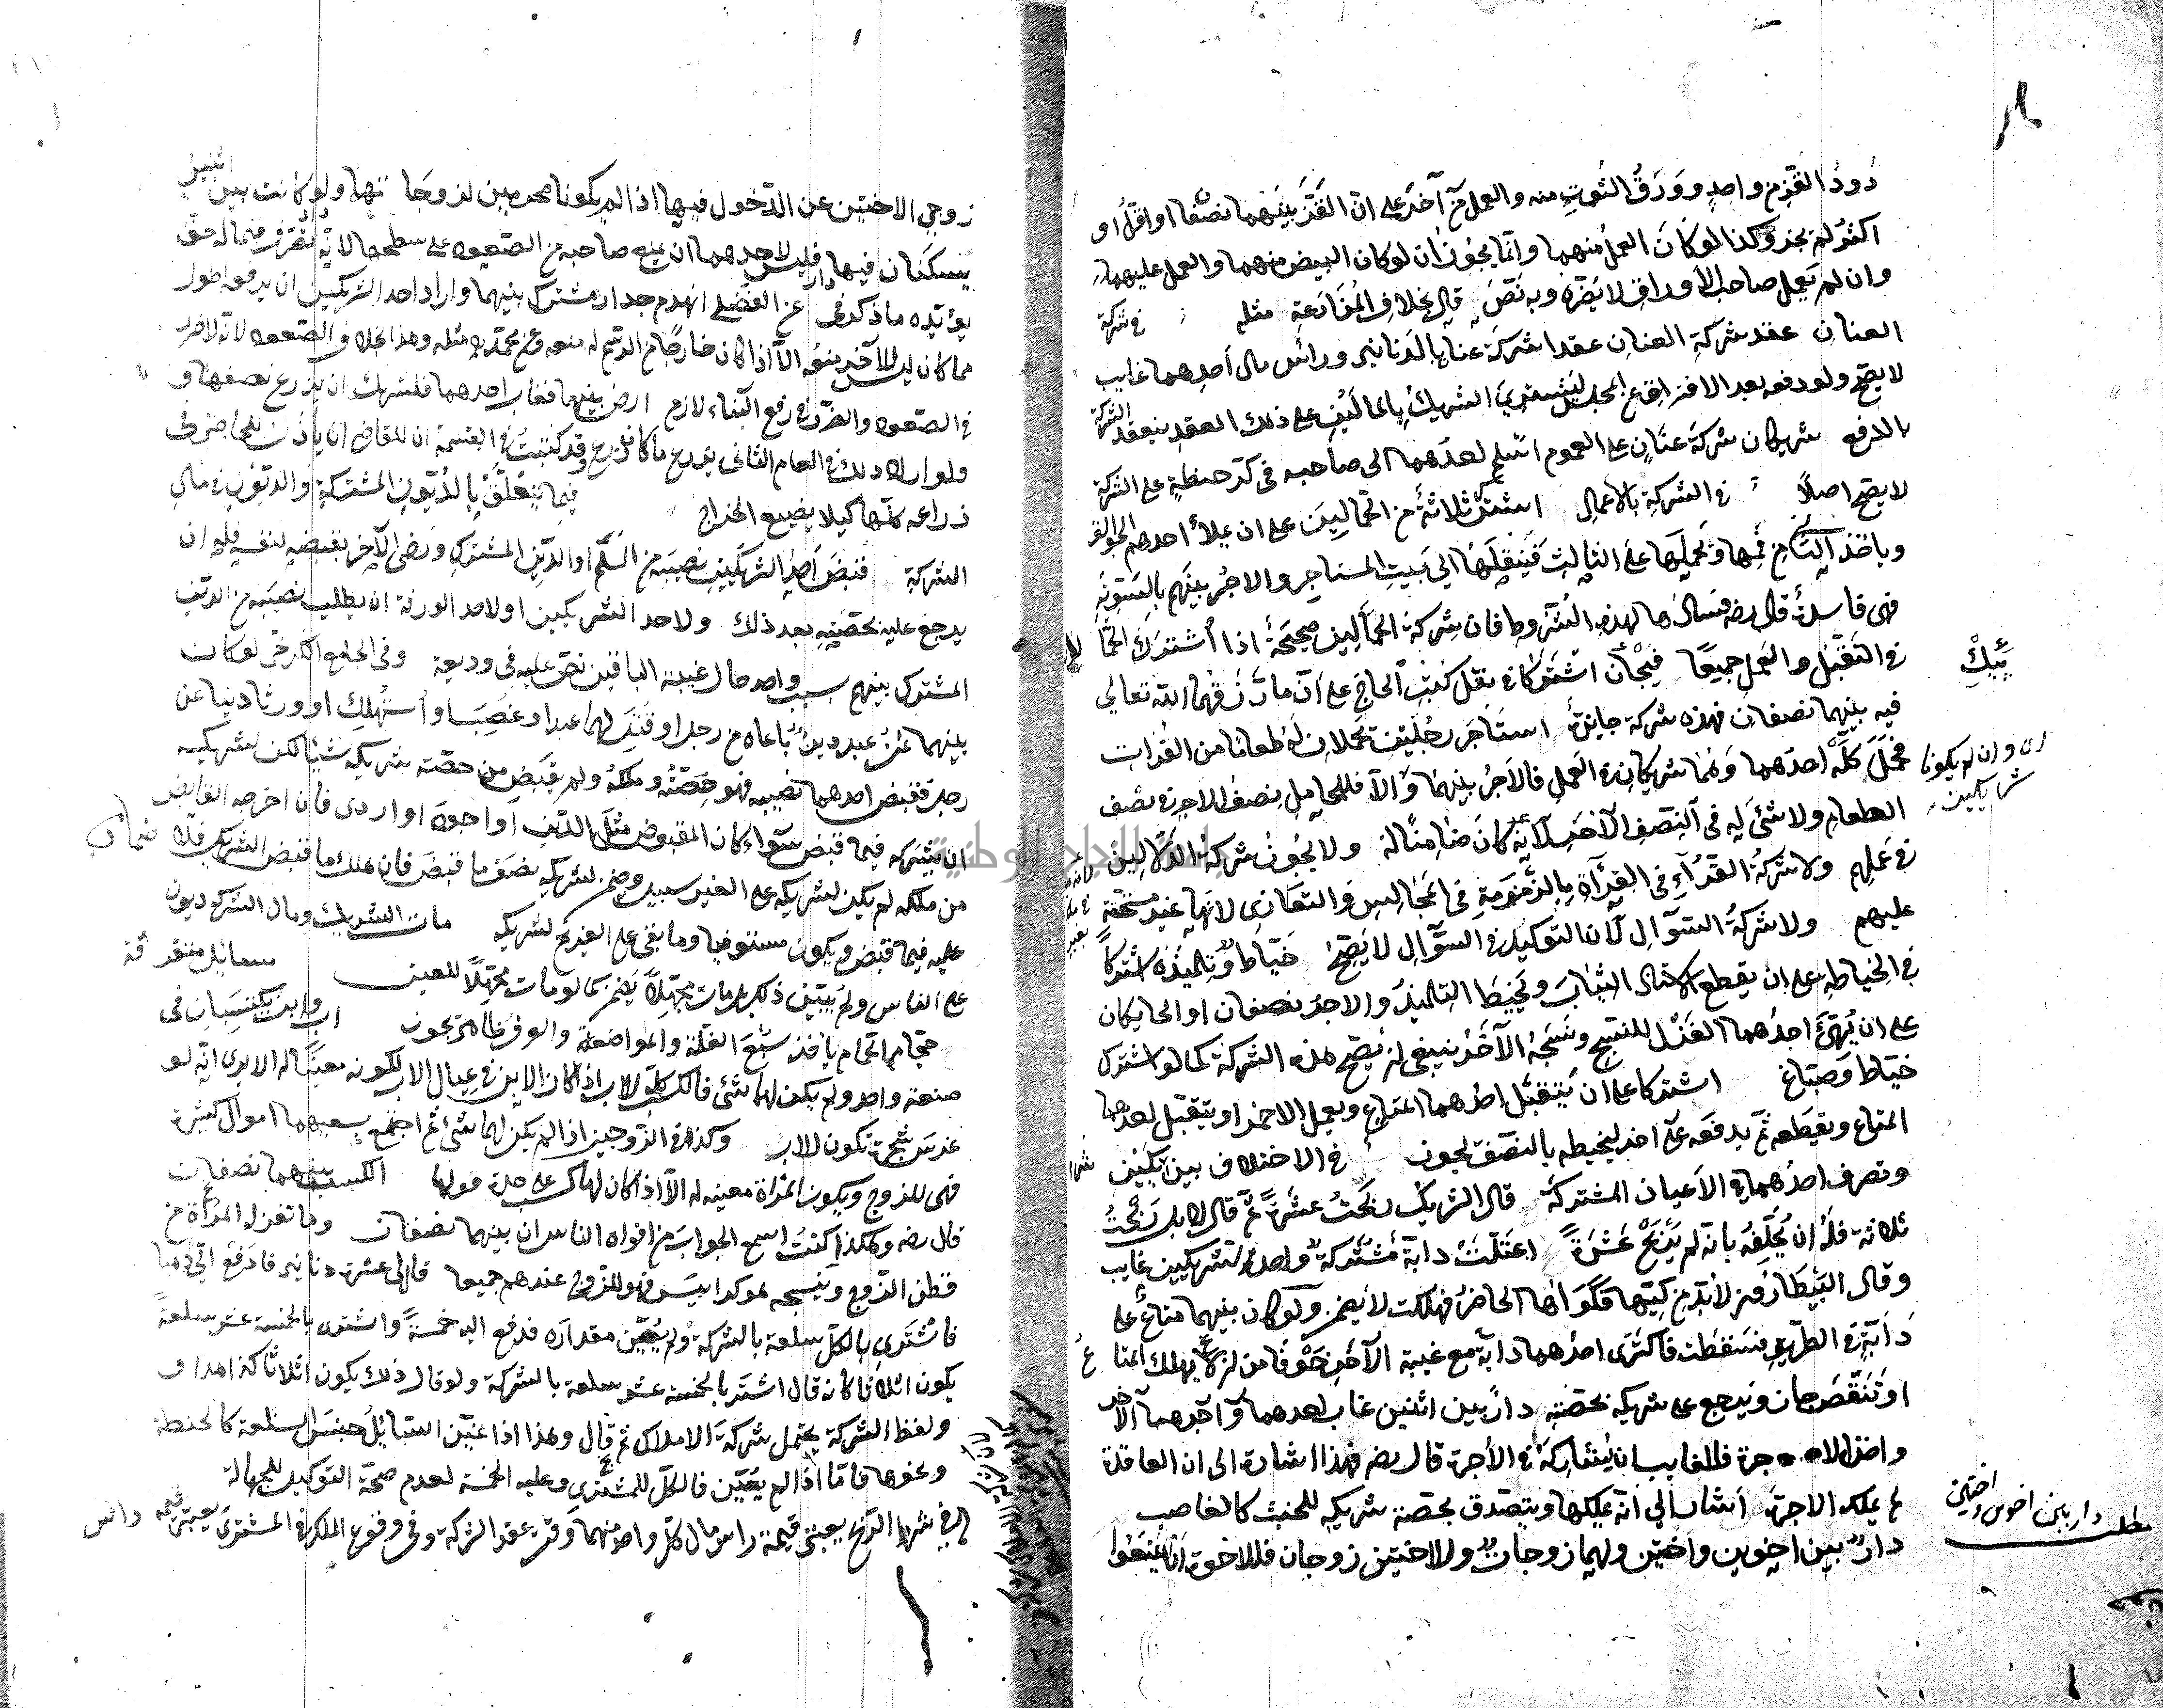 دود القز من واحد وورق التوت منه والعمل من آخر على ان القز بينهما نصفا او اقل او
اكثر لم يجز وكذا لو كان العمل منهما وانما يجوز ان لو كان البيض منهما والعمل عليهما
وان لم يعمل صاحب الاوراق لا يضره وبه نص قال بخلاف المزارعة مثله في شركة
العنان عقد شركة العنان عقدا شركة عنان بالدنانير ورأس مال احدهما غايب
لا يصح ولو دفعه بعد الافتراق عن المجلس ليشتري الشريك بالمالين على ذلك العقد ينعقد الشركة
بالدفع شريكان شركة عنان على العموم اسلم احدهما الى صاحبه في كر حنطة على الشركة
لا يصح اصلا في الشركة بالاعمال اشترك ثلاثة من الحمالين على ان يملأ احدهم الجوالق
وياخذ الثاني من فمها ويحملها على الثالث فينقلها الى بيت المستاجر والاجر بينهم بالسوية
فهي فاسدة قال رضه فسادها لهذه الشروط فان شركة الحمالين صحيحة اذا اشترك الحما لان
في التقبل والعمل جميعا فيجان اشتركا في نقل كتب الحاج على ان ما رزقهما الله تعالى
بيبك
فيه بينهما نصفان فهذه شركة جايزة استاجر رجلين يحملان له طعاما من الفرات
فحمل كله احدهما وهما شريكان في العمل فالاجر بينهما والا فللحامل نصف الاجر في نصف
اى وان لم يكونا شريكين
الطعام ولا شئ له في النصف الآخر لانه كان ضامنا له ولا يجوز شركة الدلالين
في عملهم ولا شركة القراء في القرآة بالزمزمة في المجالس والتعازي لانها غير مستحقة
عليهم ولا شركة السوآل لان التوكيل في السؤال لا يصح خياط وتلميذه اشتركا
في الخياطة على ان يقطع الاستاذ الثياب ويخيط التلميذ والاجر نصفان او الحايكان
على ان يهيئ احدهما الغزل للنسج وينسجه الآخر ينبغي ان يصح هذه الشركة كما لو اشترك
خياط وصباغ اشتركا على ان يتقبل احدهما المتاع ويعمل الاخر او يتقبل احدهما
المتاع ويقطعه ثم يدفعه على آخر ليخيطه بالنصف يجوز في الاختلاف بين الشريكين
وتصرف احدهما في الاعيان المشتركة قال الشريك ربحت عشرة ثم قال لا بل ربحت
ثلاثة فله ان يحلفه بانه لم يربح عشرة اعتلت دابة مشتركة واحد الشريكين غايب
وقال البيطارون لا بد من كيها فكواها الحاضر فهلكت لا يضمن ولو كان بينهما متاع على
دابة في الطريق فسقطت فاكترى احدهما دابة مع غيبة الآخر خوفا من ان يهلك المتاع
او تنقص جاز ويرجع على شريكه بحصته دار بين اثنين غاب احدهما وآجرها الآخر
واخذ الاجرة فللغايب ان يشاركه في الأجرة قال رضه فهذا اشارة الى ان العاقد
لم يملك الاجرة اشار الى انه يملكها ويتصدق بحصة شريكه للخبث كالغاصب
مطلب دار بين اخوين واختين
دار بين اخوين واختين ولهما زوجات وللاختين زوجان فللاخوة ان يمنعوا
زوجي الاختين عن الدخول فيها اذا لم يكونا محرمين لزوجاتهما ولو كانت بين اثنين
يسكنان فيها فليس لاحدهما ان يمنع صاحبه من الصعود على سطحها لانه تصرف فيما له حق
يؤيده ما ذكر في عن الفضلي انهدم جدار مشترك بينهما واراد احد الشريكين ان يرفعه اطول
مما كان ليس للآخر منعه الا اذا كان خارجا من الرسم له منعه وعن محمد مثله وهذا بخلاف الصعود لانه لا ضرر
في الصعود والضرر في رفع البناء لازم ارض بينهما فغاب احدهما فلشريك ان يزرع نصفها و
ولو اراد ذلك في العام الثاني يزرع ما كان زرع وقد كتبت في القسمة ان للقاضي ان يأذن للحاضر في
زراعة كلها كيلا يضيع الخراج فيما يتعلق بالديون المشتركة والديون في مال
الشركة قبض احد الشريكين نصيبه من السلم او الدين المشترك ورضى الآخر بقبضه لنفسه فله ان
يرجع عليه بحصته بعد ذلك ولاحد الشريكين او لاحد الورثة ان يطلب نصيبه من الدين
المشترك بينهم بسبب واحد حال غيبة الباقين نص عليه في وديعة وفي الجامع الكرخي لو كان
بينهما ثمن عبد دين باعاه من رجل او قتل لهما عبد او غصبا او استهلك او ورثا دينا عن
رجل فقبض احدهما نصيبه فهو حصته وملكه ولم يقبض من حصة شريكه شيئا لكن لشريكه
ان يشركه فيما قبض سواء كان المقبوض مثل الدين او اجود او اردى فان اخرجه القابض
من ملكه لم يكن لشريكه على الغير سبيل وضمن لشريكه نصف ما قبض فان هلك ما قبض الشريك فلا ضمان
عليه فيما قبض ويكون مستوفيا وما بقي على الغريم لشريكه مات الشريك ومال الشركة ديون
على الناس ولم يبين ذلك بل مات مجهلا يضمن كما لو مات مجهلا للعين مسايل متفرقة
حجام الحمام ياخذ سبع الغلة والمواضعة والعرف ظاهر يجوز اب وابن يكتسبان في
صنعة واحد ولم يكن لهما شئ فالكسب كله للاب اذا كان الابن في عيال الاب لكونه معينا له الا يرى انه لو
غرس شجرة تكون للاب وكذلك في الزوجين اذا لم يكن لهما شئ ثم اجتمع بسعيهما اموال كثيرة
فهي للزوج ويكون المرأة معينه له الا اذا كان لها كسب على حدة فهو لها الكسب بينهما نصفان
قال رضه وهكذا كنت اسمع الجواب من افواه الناس ان بينهما نصفان وما تغزله المرأة من
قطن الزوج وينسجه هو كرابيس فهو للزوج عندهم جميعا قال لي عشرة دنانير فادفع الي خمسة
فاشترى بالكل سلعة بالشركة ولم يبين مقداره فدفع اليه خمسة واشترى بالخمسة عشر سلعة
يكون اثلاثا كانه قال اشتر بالخمسة عشر سلعة بالشركة ولو قال ذلك يكون اثلاثا كذا هذا
ولفظ الشركة يحتمل شركة الاملاك ثم قال وهذا اذا عين السائل جنس السلعة كالحنطة
ونحوها فاما اذا لم يعين فالكل للمشتري وعليه الخمسة لعدم صحة التوكيل للجهالة
في شرط الربح يعتبر قيمة راس مال كل واحد منهما وقت عقد الشركة وفي وقوع الملك في المشترى يعتبر قيمة راس